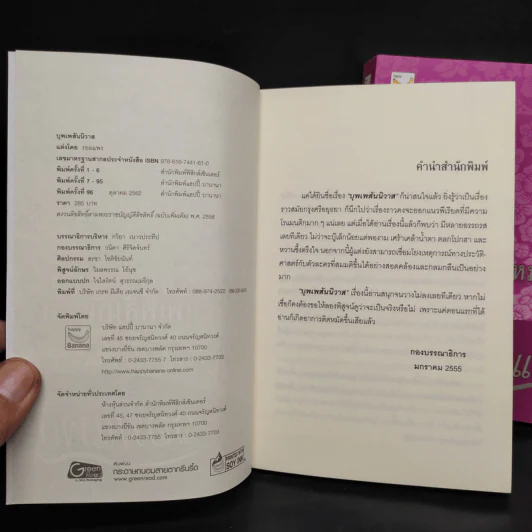 บุพเพสันนิวาส
แต่งโดย รอมแพง
เลขมาตรฐานสากลประจำหนังสือ ISBN 978-616-7441-61-0
พิมพ์ครั้งที่ 1 - 6 สำนักพิมพ์ฟิสิกส์เซ็นเตอร์
พิมพ์ครั้งที่ 7 - 95 สำนักพิมพ์แฮปปี้ บานานา
พิมพ์ครั้งที่ 96 ตุลาคม 2562 สำนักพิมพ์แฮปปี้ บานานา
ราคา 285 บาท
สงวนลิขสิทธิ์ตามพระราชบัญญัติลิขสิทธิ์ (ฉบับเพิ่มเติม) พ.ศ. 2558
บรรณาธิการบริหาร
กองบรรณาธิการ
ศิลปกรรม
พิสูจน์อักษร
ออกแบบปก
พิมพ์ที่
จัดพิมพ์โดย
happy
Banana
บริษัท แฮปปี้ บานานา จำกัด
เลขที่ 45 ซอยจรัญสนิทวงศ์ 40 ถนนจรัญสนิทวงศ์
แขวงบางยี่ขัน เขตบางพลัด กรุงเทพฯ 10700
http://www.happybanana-online.com
จัดจำหน่ายทั่วประเทศโดย
ห้างหุ้นส่วนจำกัด สำนักพิมพ์ฟิสิกส์เซ็นเตอร์
เลขที่ 45, 47 ซอยจรัญสนิทวงศ์ 40 ถนนจรัญสนิทวงศ์
แขวงบางยี่ขัน เขตบางพลัด กรุงเทพฯ 10700
Green
Read
พิมพ์บน
กระดาษถนอมสายตากรีนรีด
www.greenread.com
PRINTED WITH
SOY INK
คำนำสำนักพิมพ์
แค่ได้ยินชื่อเรื่อง "บุพเพสันนิวาส" ก็น่าสนใจแล้ว ยิ่งรู้ว่าเป็นเรื่อง
ราวสมัยกรุงศรีอยุธยา ก็นึกไปว่าเรื่องราวคงจะออกแนวพีเรียดที่มีความ
โรแมนติกมาก ๆ แน่เลย แต่เมื่อได้อ่านเรื่องนี้แล้วก็พบว่า มีหลายอรรถรส
เลยทีเดียว ไม่ว่าจะบู๊เล็กน้อยแต่พองาม เศร้าเคล้าน้ำตา ตลกโปกฮา และ
หวานซึ้งตรึงใจ นอกจากนี้ผู้แต่งยังสามารถเชื่อมโยงเหตุการณ์ทางประวัติ-
ศาสตร์กับตัวละครที่สมมติขึ้นได้อย่างสอดคล้องและกลมกลืนเป็นอย่าง
มาก
"บุพเพสันนิวาส" เรื่องนี้อ่านสนุกจนวางไม่ลงเลยทีเดียว หากไม่
เชื่อก็คงต้องขอให้ลองพิสูจน์ดูว่าจะเป็นจริงหรือไม่ เพราะแค่ตอนแรกที่ได้
อ่านก็เกิดอาการติดหนึบขึ้นเสียแล้ว
กองบรรณาธิการ
มกราคม 2555